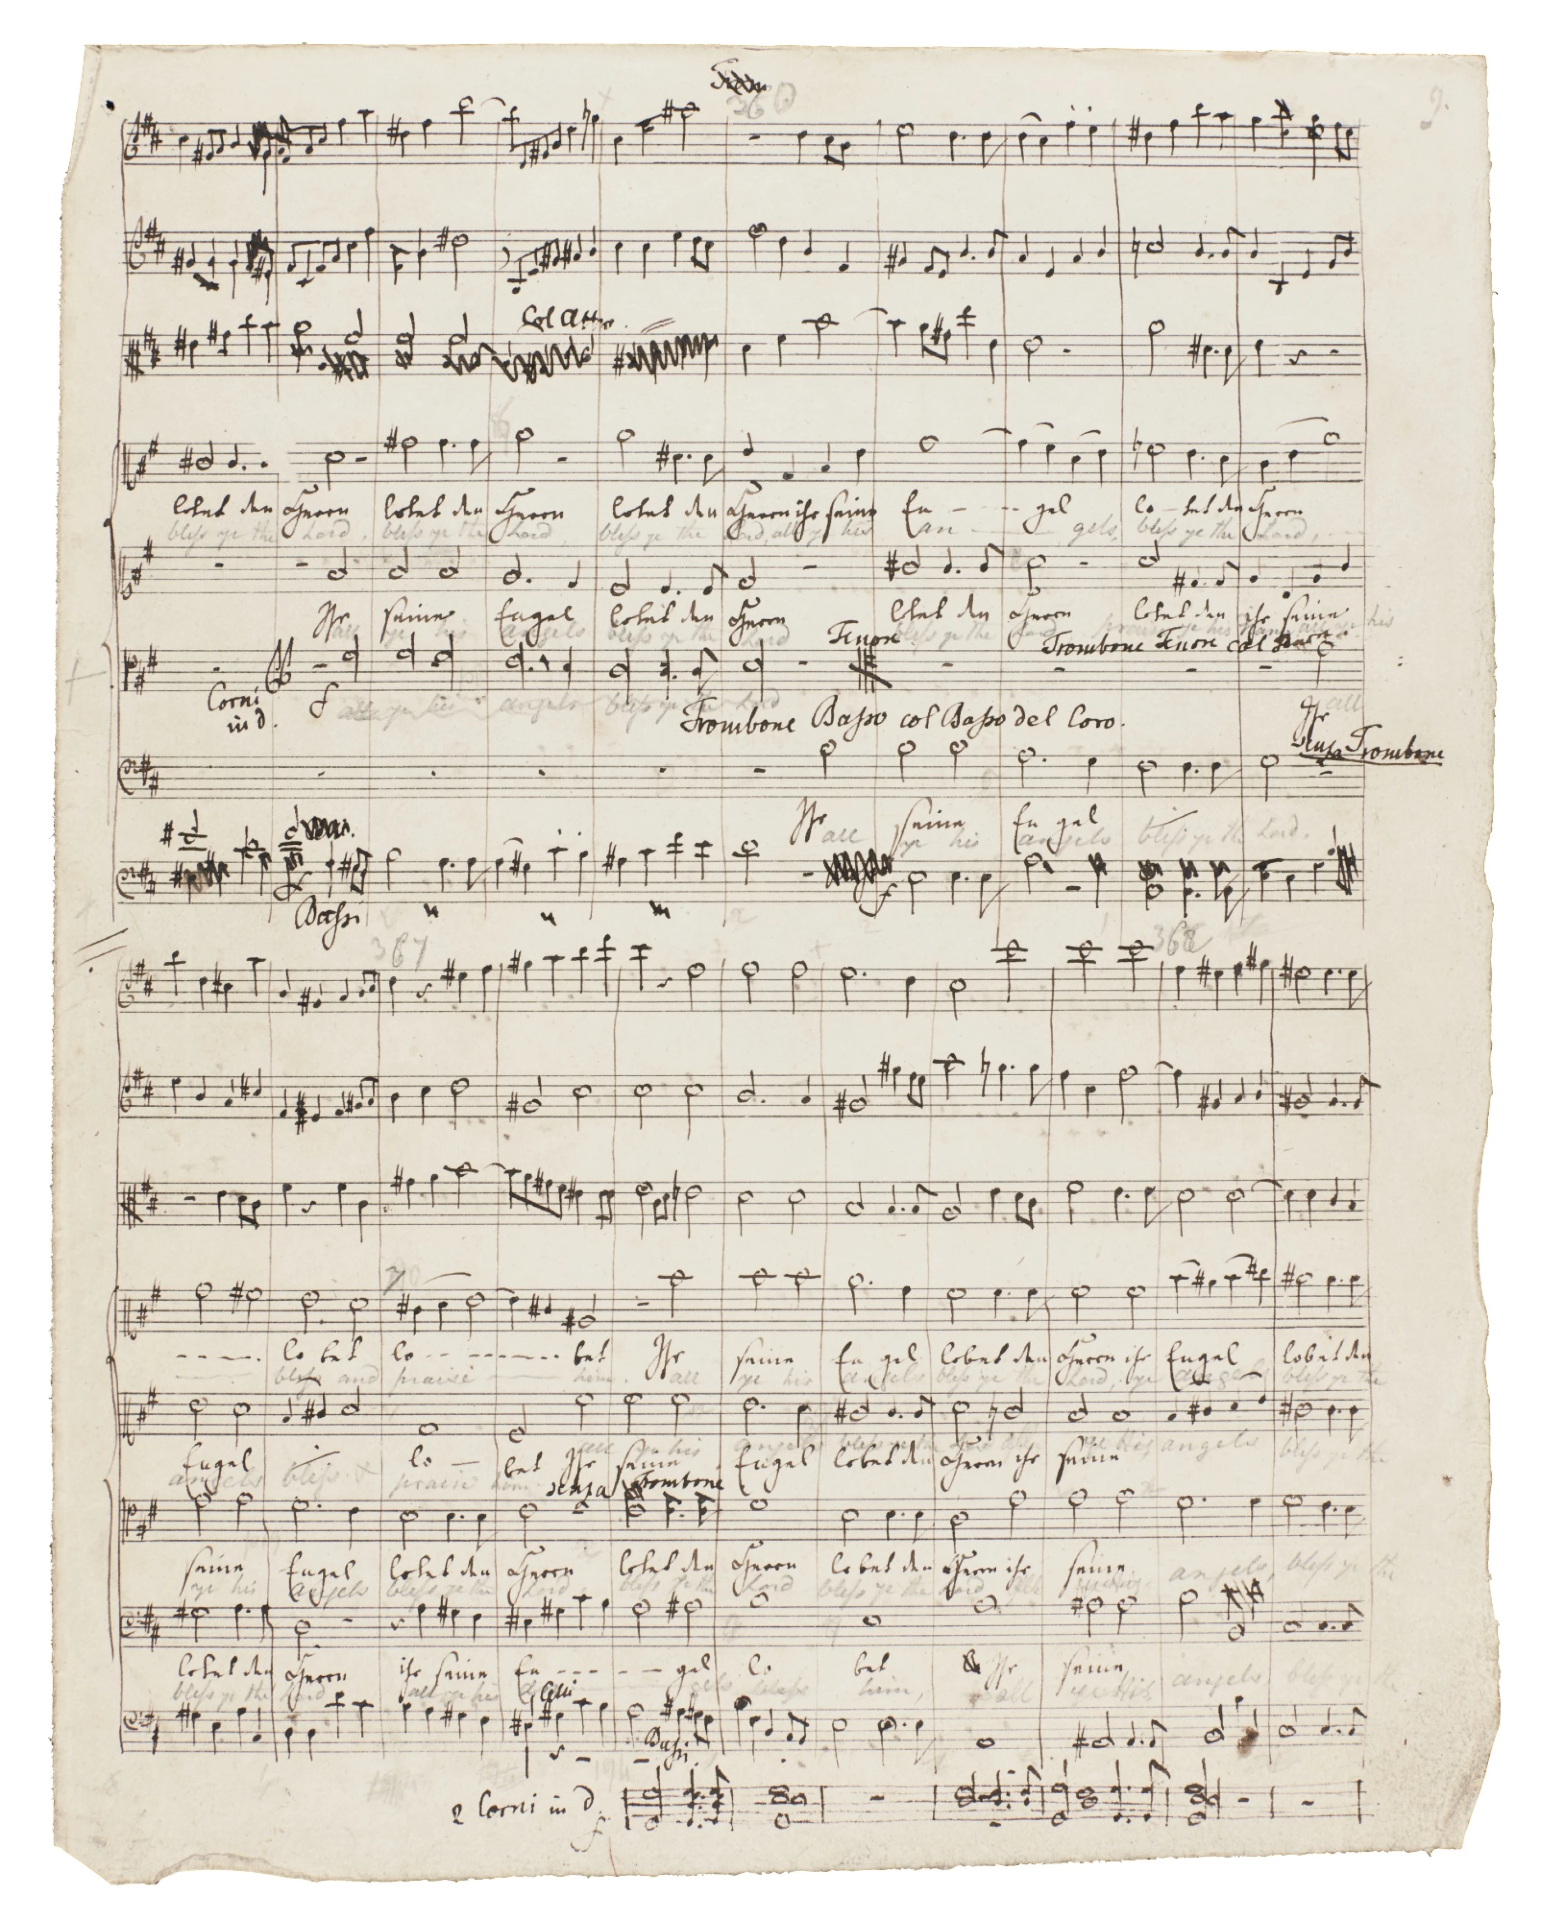 360
9.
Col Alto
lobet den Herrn lobet den Herrn lobet den Herrn ihr seine En - - - gel lo - bet den Herrn
bless ye the Lord, bless ye the Lord, bless ye the Lord, all ye his an - gels, bless ye the Lord,
Ihr seine Engel lobet den Herrn lobet den Herrn lobet den ihr seine
all ye his angels bless ye the Lord bless ye the Lord
Tenore
Trombone Tenore col
Corni
in d.
f
all ye his angels bless ye the Lord
Ihr
all
Trombone Basso col Basso del Coro.
senza Trombone
Ihr seine En gel
all ye his angels bless ye the Lord.
f
Bassi
367
368
- - - - . lo bet lo - - - - - - - - bet Ihr seine En gel lobet den Herrn ihr Engel lobet den
bless and praise him. all ye his angels bless ye the Lord, ye angels bless ye the
Engel lo - bet Ihr seine Engel lobet den Herrn ihr seine
angels bless praise him all ye his angels bless ye the angels bless ye the
senza Trombone
seine Engel lobet den Herrn lobet den Herrn lobet den Herrn ihr seine
ye his angels bless ye the Lord bless ye the Lord bless ye the Lord angels, bless ye the
lobet den Herrn ihr seine En - - - - - gel lo bet Ihr seine
bless ye the Lord all ye his bless him, all angels bless ye the
Bassi.
2 Corni in D.
f